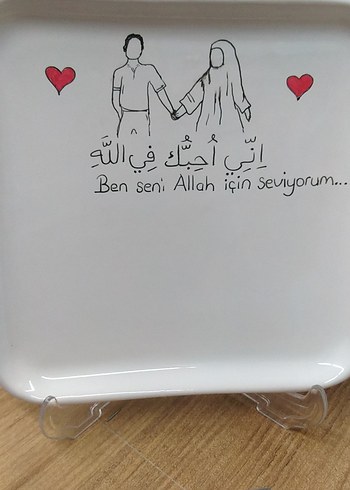 اِنِّي اُحِبُّك فِي اللَّهِ
Ben seni Allah için seviyorum...